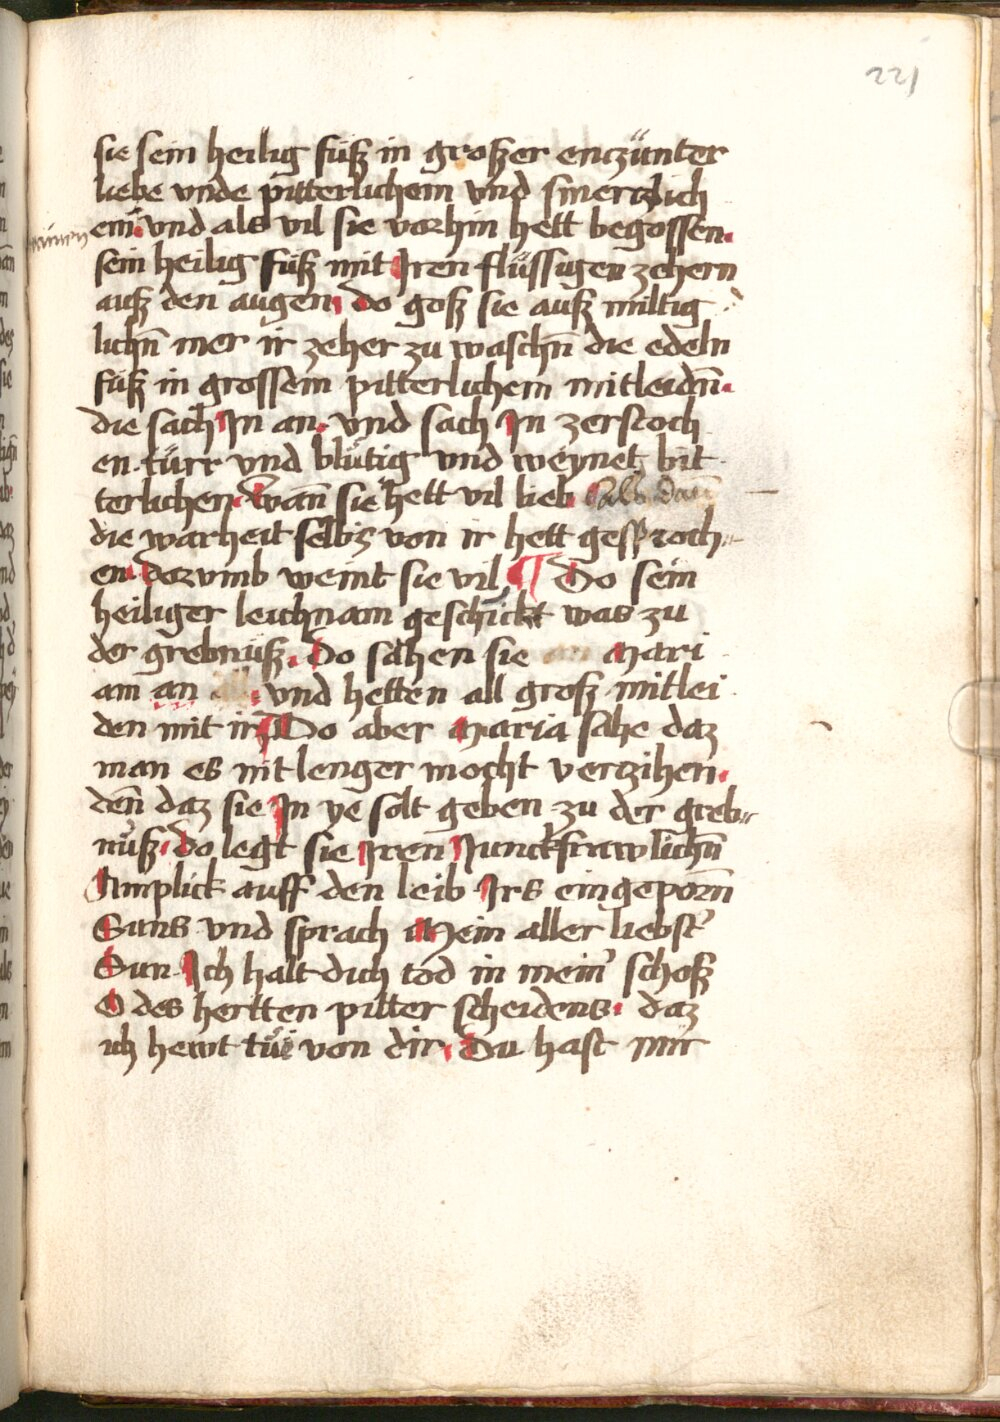 221
sie sein heilig füsz in groszer enczünter
liebe vnde pitterlichem vnd smerczlich
em vnd als vil sie vorhin hett begossen.
sein heilig füsz mit Iren flüssigen zehern
ausz den augen. do gosz sie ausz miltig
lichn̄ mer ir zeher zu waschn̄ die edeln
füsz in grossem pitterlichem mitleidn̄.
die sach In an. vnd sach In zerstoch
en. türr vnd blütig vnd weynet bit
terlichen. wan̄ sie hett vil lieb als dan̄
die warheit selbs von ir hett gesproch
en. dorvmb weint sie vil ¶ Do sein
heiliger leichnam geschickt was zu
der grebnüsz. Do sahen sie Mari
am an vnd hetten all grosz mitlei
den mit ir Do aber Maria sahe daz
man es nit lenger mocht verczihen.
den̄ daz sie In ye solt geben zu der greb
nüsz. do legt sie Iren Junckfrawlichn̄
Amplick auff den leib Irs eingeporn̄
Suns vnd sprach Mein aller liebst'
Sun Ich halt dich tod in mein' schosz
O des hertten pitter scheidens. daz
ich hewt tü von dir. Du hast mir